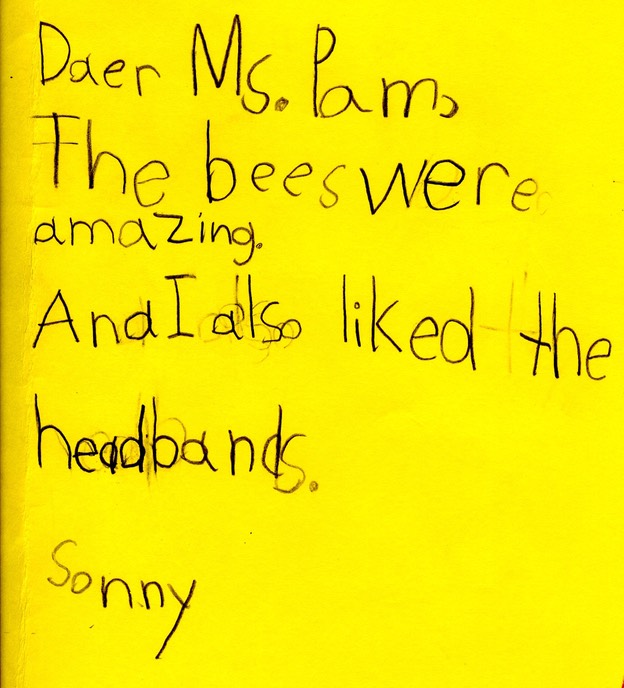 Daer Ms. Pam,
The bees were
amazing.
And I also liked the
headbands.
Sonny